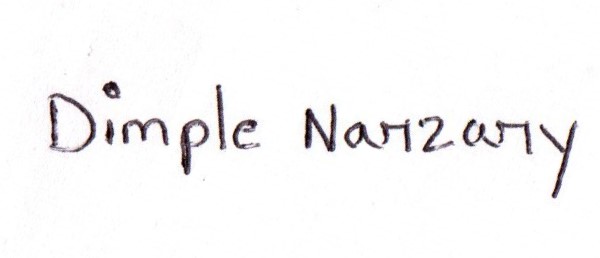 Dimple Narzary